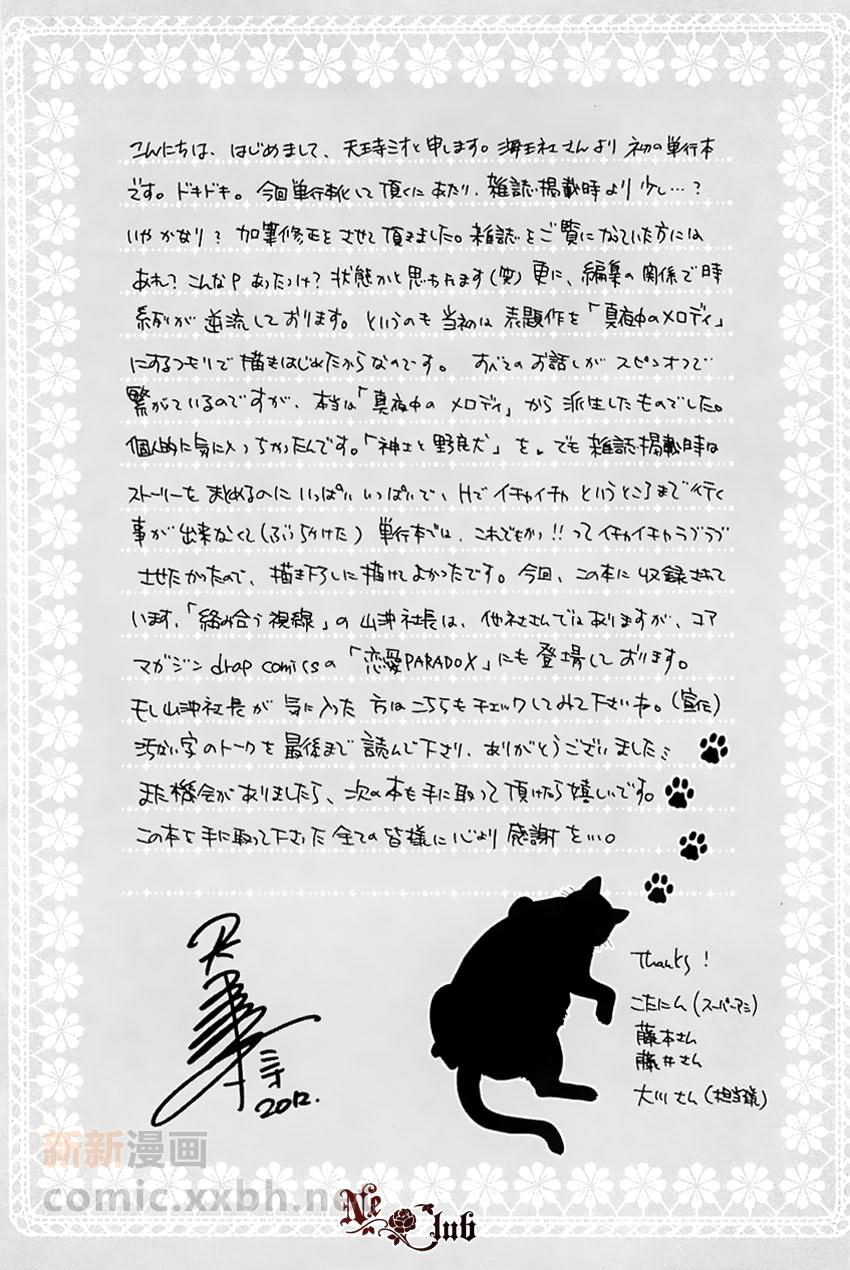 こんにちは、はじめまして、天王寺ミオと申します。海王社さんより初の単行本
です。ドキドキ。今回単行本化して頂くにあたり、雑誌掲載時より少し…?
いやかなり?加筆修正をさせて頂きました。雑誌をご覧になっていた方には
あれ?こんなPあったっけ?状態かと思われます(笑)更に、編集の関係で時
系列が逆流しております。というのも当初は表題作を「真夜中のメロディ」
にするつもりで描きはじめたからなのです。すべてのお話しがスピンオフで
繋がているのですが、本当は「真夜中のメロディ」から派生したものでした。
個人的に気に入っちゃったんです。「紳士と野良犬」を。でも雑誌掲載時は
ストーリーをまとめるのにいっぱいいっぱいで、Hでイチャイチャというところまで行く
事が出来なくて(ぶっちゃけた)単行本では、これでもかっ!!ってイチャイチャラブラブ
させたかったので、描き下ろしに描けてよかったです。今回、この本に収録されて
います、「絡み合う視線」の山沖社長は、他社さんではありますが、コア
マガジンdrap comicsの「恋愛PARADOX」にも登場しております。
もし山沖社長が気に入った方はこちらもチェックしてみて下さいネ。(宣伝)
汚ない字のトークを最後まで読んで下さり、ありがとうございました
また機会がありましたら、次の本も手に取って頂けたら嬉しいです。
この本を手に取って下さった全ての皆様に心より感謝を…。
天王寺ミオ
2012.
Thanks!
こたにん(スーパーアシ)
藤本さん
藤井さん
大川さん(担当様)
新新漫画
comic.xxbh.ne
Ne Club